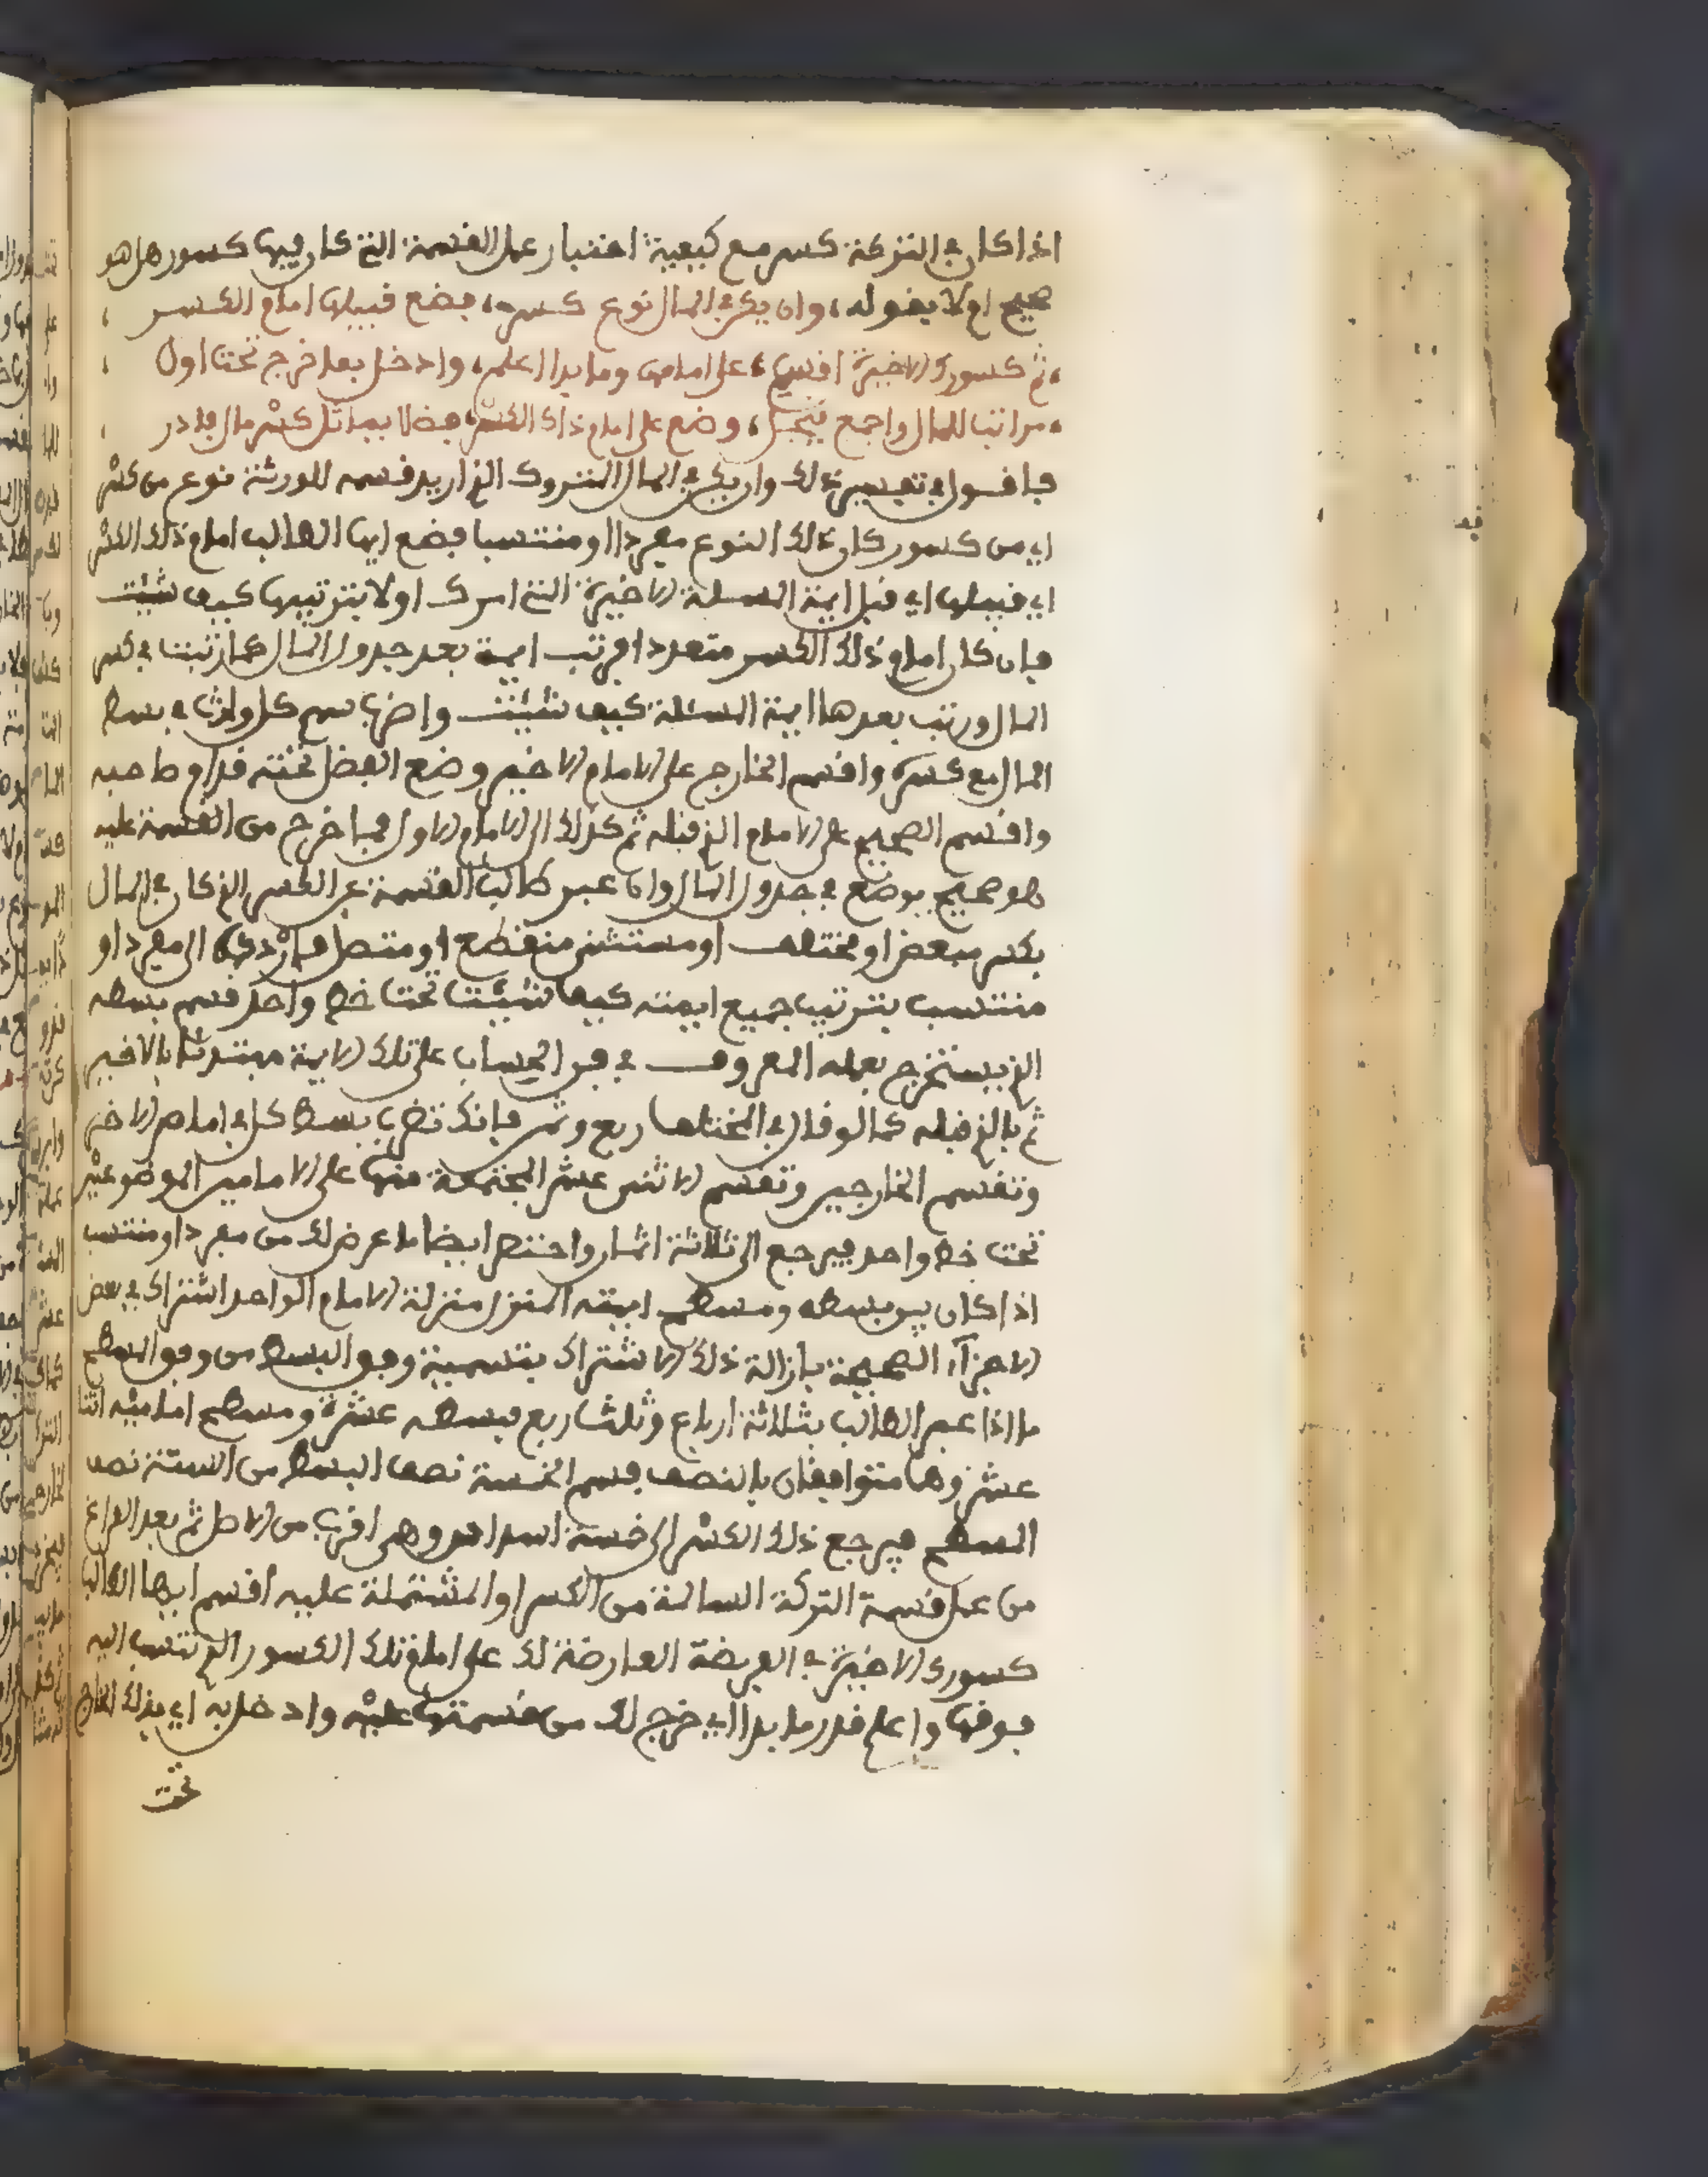 اذا كان في التركة كسر مع كيفية اختبار عمل القسمة التي كان فيها كسور هل هو
صحيح ام لا بقوله، وان يكن في المال نوع كسر، فضع قبيلها امام الكسر
ثم كسورك الاخيرة اقسم، على امامها وما بدا اعلم، وادخل بما خرج تحت اول
مراتب للمال واجمع، وضع على امام ذاك الكسر، فضلا يماثل كسر مال فادر
فاقول في تفسير ذلك وان يكن في المال المتروك الذي اريد قسمه للورثة نوع من كسر
اي من كسور كان ذلك النوع مفردا او منتسبا فضع ايها الطالب امام ذلك الكسر
اي قبيلها اي قبل ايمة المسئلة الاخيرة التي امرك اولا بترتيبها كيف شئت
فان كان امام ذلك الكسر متعددا فرتب ايمة بعد جدول المال كما رتبت في كسر
المال ورتب بعدها ايمة المسئلة كيف شئت واضرب سهم كل وارث في بسط
المال مع كسره واقسم الخارج على الامام الاخير وضع الفضل تحته قدام صاحبه
واقسم الصحيح على الامام الذي قبله ثم كذلك الى الامام الاول فما خرج من القسمة عليه
فهو صحيح يوضع في جدول المال وان عبر طالب القسمة عن الكسر الذي كان في المال
بكسر مبعض او مختلف او مستثنى منقطع او متصل فارددها الى مفرد او
منتسب بترتيب جميع ايمته كيف شئت تحت خط واحد قسم بسطه
الذي يستخرج بعمله المعروف في فن الحساب على تلك الايمة مبتدئا بالاخير
ثم بالذي قبله كما لو قال في المختلف ربع وثمن فانك تضرب بسط كل في امام الاخر
وتقسم الخارجين وتقسم الاثني عشر المجتمعة منها على الامامين الموضوعين
تحت خط واحد فيرجع الى ثلاثة اثمان واختصر ايضا ما عرض لك من مفرد او منتسب
اذا كان بين بسطه ومسطح ايمته المنزل منزلة الامام الواحد اشتراك في بعض
الاجزاء الصحيحة بازالة ذلك الاشتراك بتسمية وفق البسط من وفق المسطح
ما اذا عبر الطالب بثلاثة ارباع وثلث ربع فبسطه عشرة ومسطح اماميه اثنا
عشر وهما متوافقان بالنصف فسم الخمسة نصف البسط من الستة نصف
المسطح فيرجع ذلك الكسر الى خمسة اسداس وهي اقرب من الاصل ثم بعد الفراغ
من عمل قسمة التركة السالمة من الكسر او المشتملة عليه اقسم ايها الطالب
كسورك الاخيرة في الفريضة العارضة لك على امام تلك الكسور التي تنتسب اليه
فوقها واعلم قدر ما بدا اي خرج لك من قسمتها عليه وادخل به اي بذلك الخارج
تحت